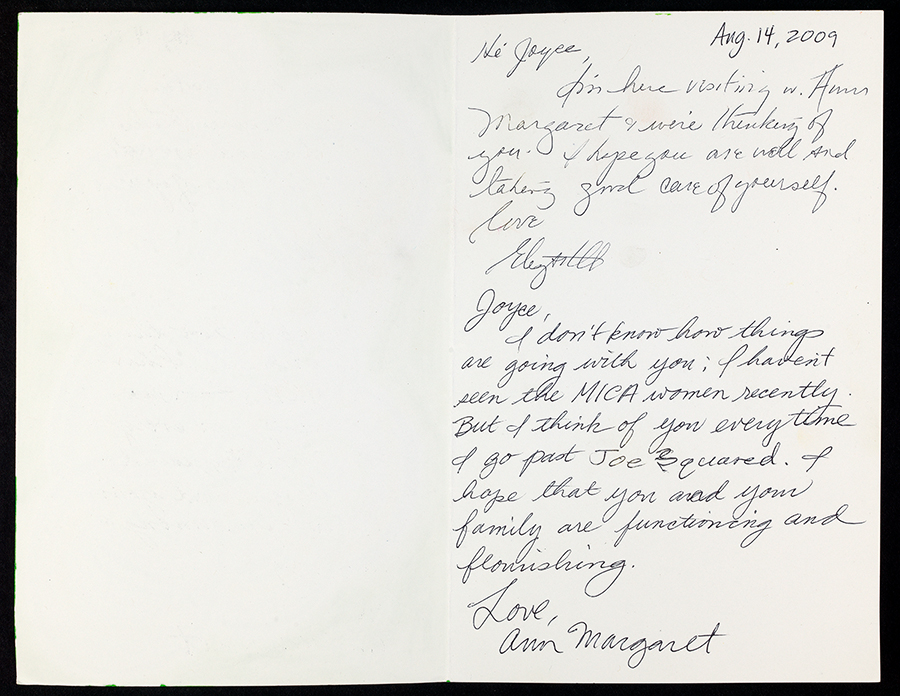 Aug. 14, 2009
Hi Joyce,
I'm here visiting w. Ann
Margaret & we're thinking of
you. I hope you are well and
taking good care of yourself.
Love
Joyce,
I don't know how things
are going with you; I haven't
seen the MICA women recently.
But I think of you every time
I go past Joe Squared. I
hope that you and your
family are functioning and
flourishing.
Love,
Ann Margaret